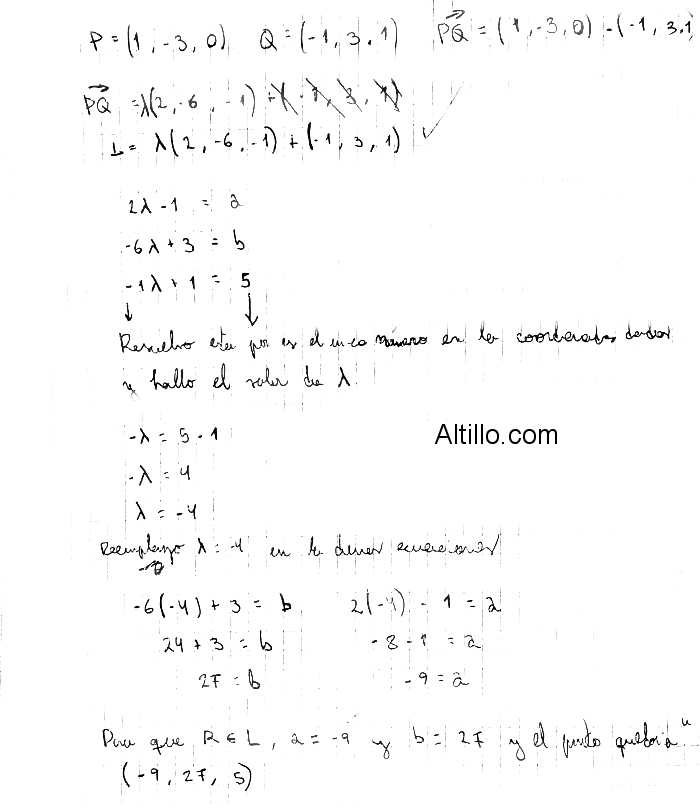 P = (1, -3, 0) Q = (-1, 3, 1) PQ = (1, -3, 0) - (-1, 3, 1
PQ = λ(2, -6, -1) + (-1, 3, 1)
L = λ(2, -6, -1) + (-1, 3, 1) ✓
2λ - 1 = a
-6λ + 3 = b
-1λ + 1 = 5
↓ ↓
Resuelvo esta por es el único número en las coordenadas dadas
y hallo el valor de λ
-λ = 5 - 1
Altillo.com
-λ = 4
λ = -4
Reemplazo λ = -4 en las demás ecuaciones
-6(-4) + 3 = b 2(-4) - 1 = a
24 + 3 = b -8 - 1 = a
27 = b -9 = a
Para que R ∈ L, a = -9 y b = 27 y el punto quedaría "
(-9, 27, 5)